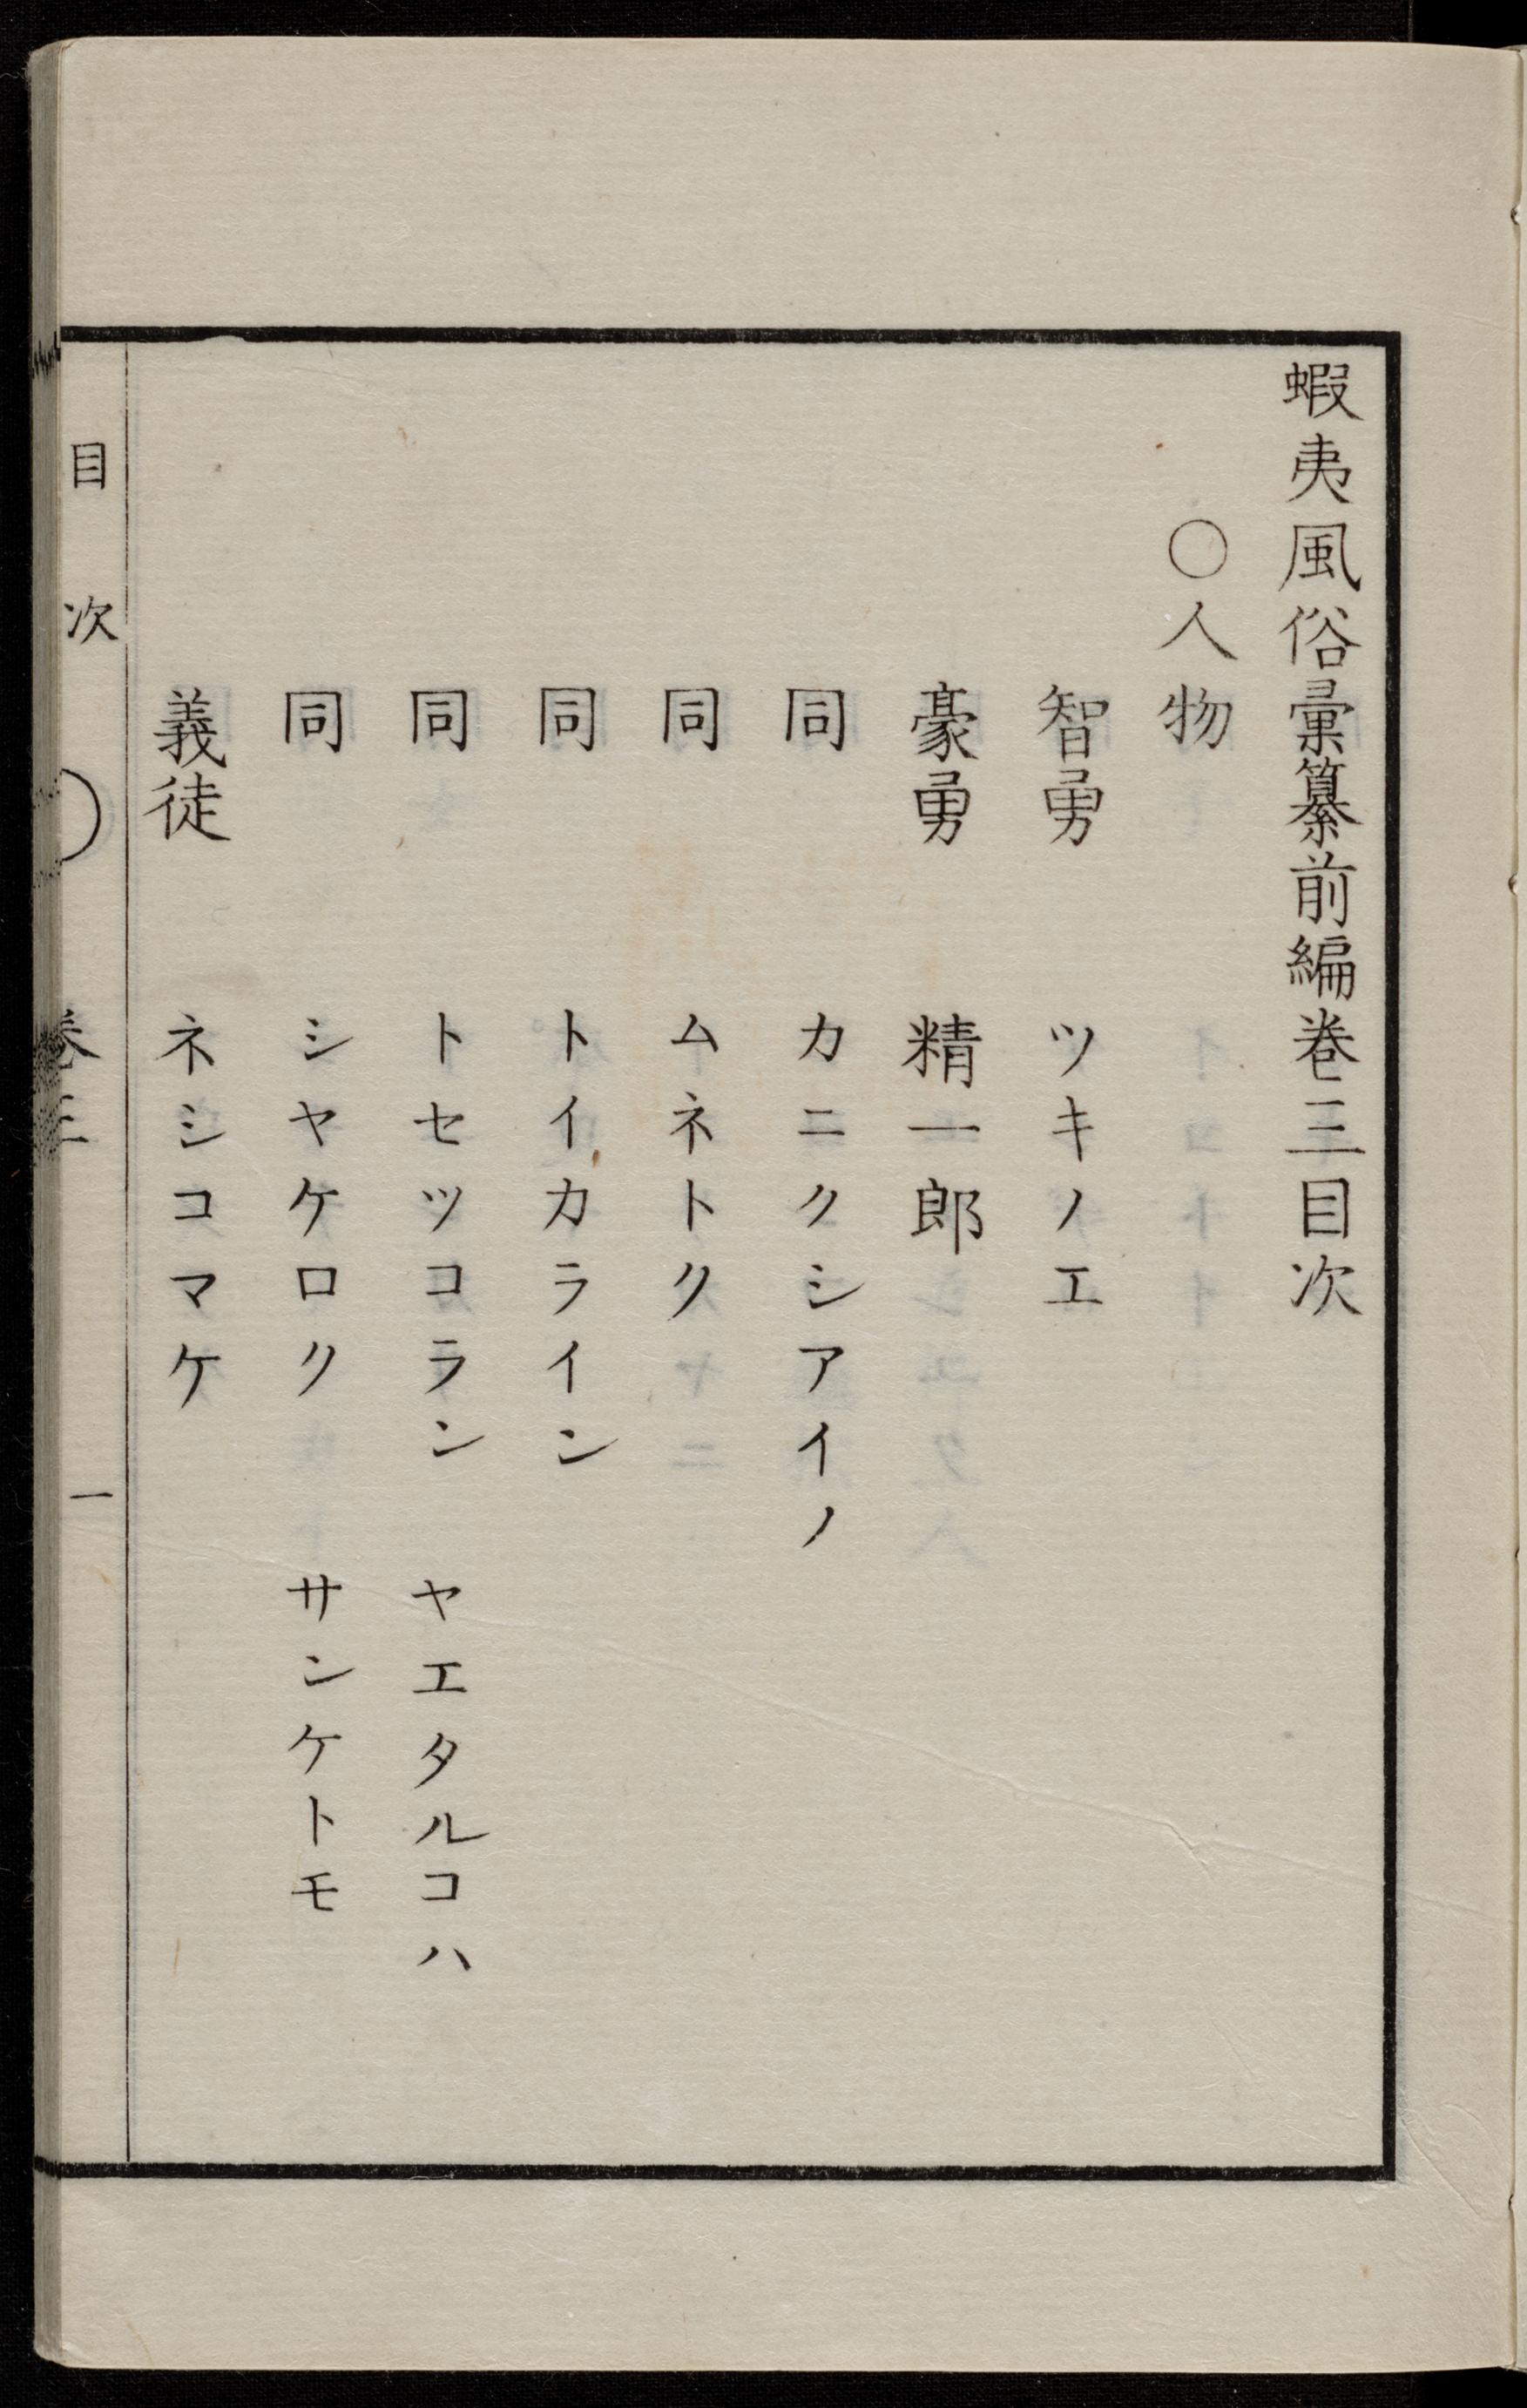 蝦夷風俗彙纂前編卷三目次
〇人物
智勇 ツキノエ
豪勇 精一郎
同 カニクシアイノ
同 ムネトク
同 トイカライン
同 トセツコラン ヤエタルコハ
同 シヤケロク サンケトモ
義徒 ネシコマケ
目次 〇 卷三 一